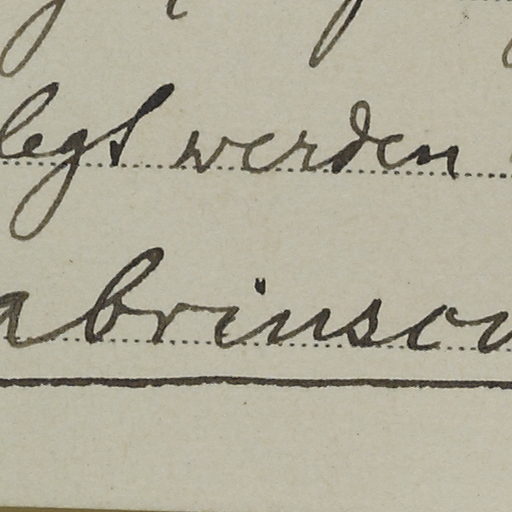 legt werden
abrinsow